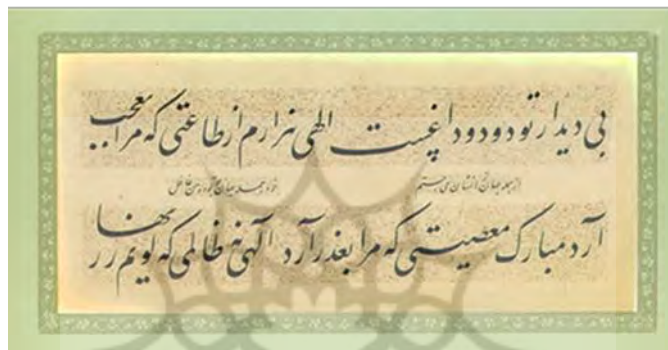 بی دیدار تو درد و داغیست الهی بیزارم از طاعتی که مرا بعجب
از همه جهان نشان می جستم
آرد مبارک معصیتی که مرا بعذر آرد الهی نه ظالمی که گویم زنهار